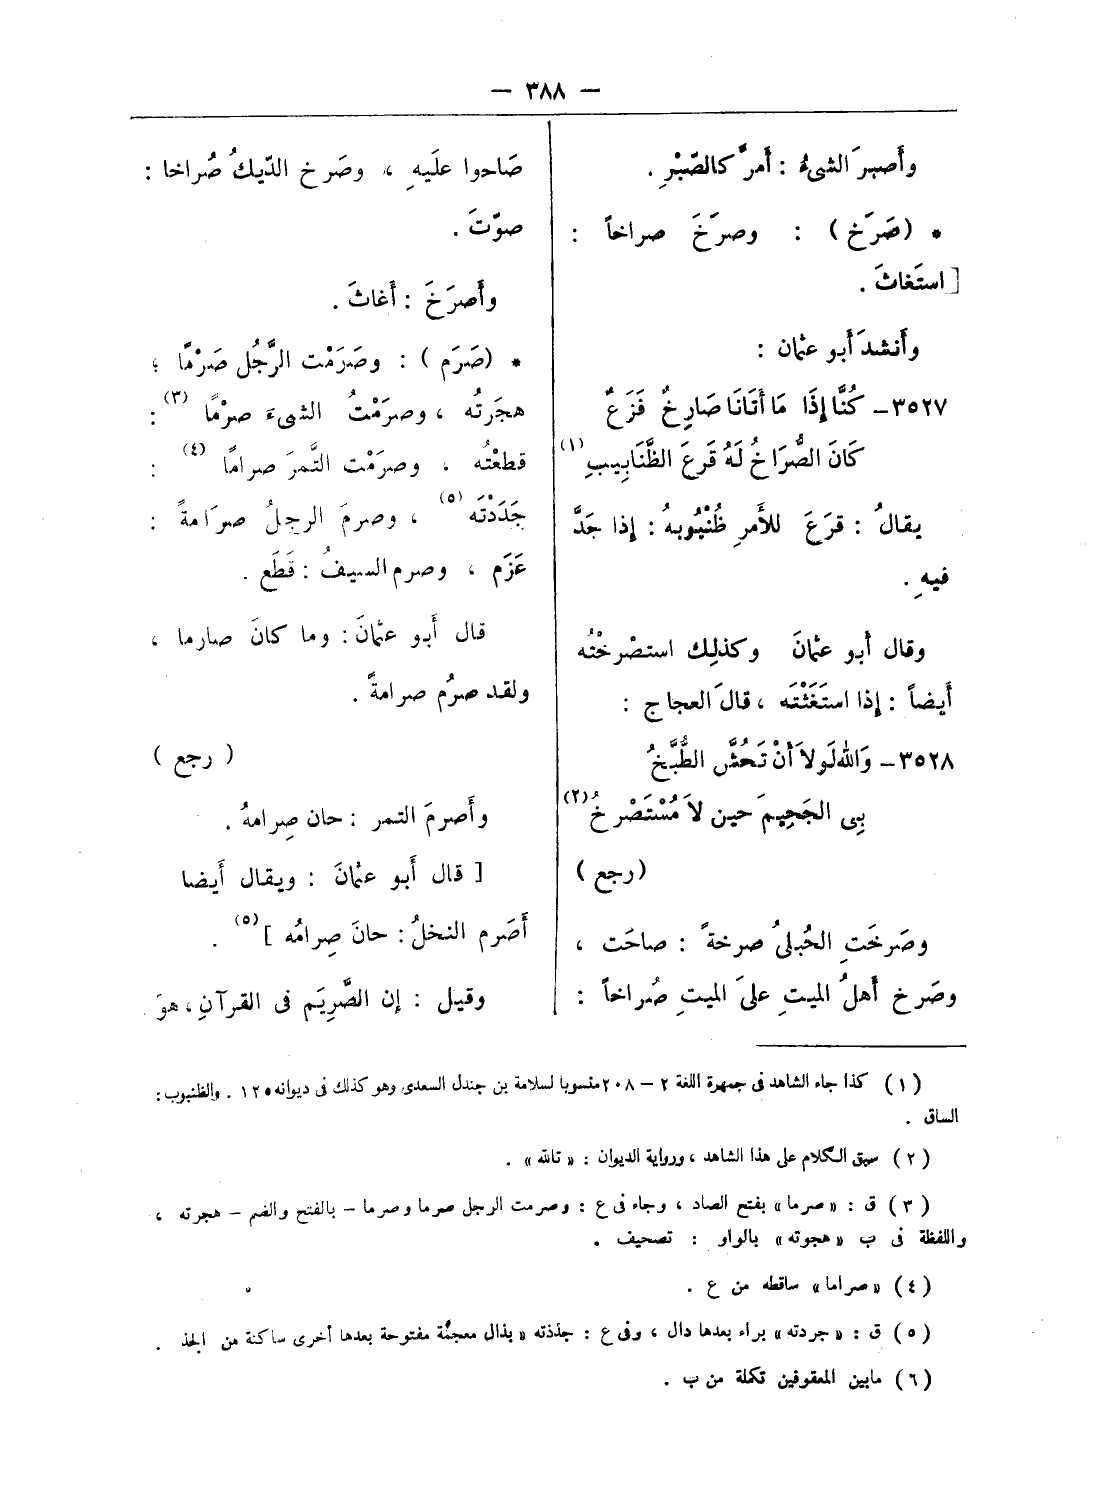 — ٣٨٨ —
وأَصبرَ الشىءُ : أَمرَّ كالصّبْرِ .
* (صَرَخ) : وصرَخَ صراخاً :
[ استَغاثَ .
وأَنشدَ أَبو عثمان :
٣٥٢٧ – كُنَّا إِذَا مَا أَتَانَا صَارِخٌ فَزَعٌ
كَانَ الصُّرَاخُ لَهُ قَرعَ الظَّنَابِيبِ (١)
يقالُ : قرَعَ للأَمرِ ظُنْبُوبهُ : إذا جَدَّ
فيهِ .
وقال أَبو عثمانَ وكذلِك استصْرخْتُه
أَيضاً : إذا استَغَثْتَه ، قالَ العجاج :
٣٥٢٨ – وَاللهِ لَولاَ أَنْ تَحُشَّ الطُّبَّخُ
بِى الجَحِيمَ حين لاَ مُسْتَصْرخُ (٢)
(رجع)
وصَرخَتِ الحُبلىُ صرخةً : صاحَت ،
وصَرخ أَهلُ الميتِ علىَ الميتِ صُراخاً :
صَاحوا علَيهِ ، وصَرخ الدّيكُ صُراخا :
صوّتَ .
وأَصرَخَ : أَغاثَ .
* (صَرَم) : وصَرَمْت الرَّجُل صَرْمًا ؛
هجَرتُه ، وصرَمْتُ الشىءَ صرْمًا (٣) :
قطعْتُه ، وصرَمْت التَّمرَ صرامًا (٤) :
جَدَدْتَه (٥) ، وصرمَ الرجلُ صرَامةً :
عَزَم ، وصرم السيفُ : قَطَع .
قال أَبو عثمانَ : وما كانَ صارما ،
ولقد صرُم صرامةً .
(رجع)
وأَصرمَ التمر : حان صِرامهُ .
[ قال أَبو عثمانَ : ويقال أَيضا
أَصَرم النخلُ : حانَ صِرامُه ] (٥) .
وقيل : إن الصَّرِيَم فى القرآنِ ، هوَ
(١) كذا جاء الشاهد فى جمهرة اللغة ٢ – ٢٠٨ منسوبا لسلامة بن جندل السعدى وهو كذلك فى ديوانه ١٢٥ . والظنبوب :
الساق .
(٢) سبق الكلام على هذا الشاهد ، ورواية الديوان : « تالله » .
(٣) ق : « صرما » بفتح الصاد ، وجاء فى ع : وصرمت الرجل صرما وصرما – بالفتح والضم – هجرته ،
واللفظة فى ب « هجوته » بالواو : تصحيف .
(٤) « صراما » ساقطه من ع .
(٥) ق : « جردته » براء بعدها دال ، وفى ع : جذذته « بذال معجمة مفتوحة بعدها أخرى ساكنة من الجذ .
(٦) مابين المعقوفين تكملة من ب .